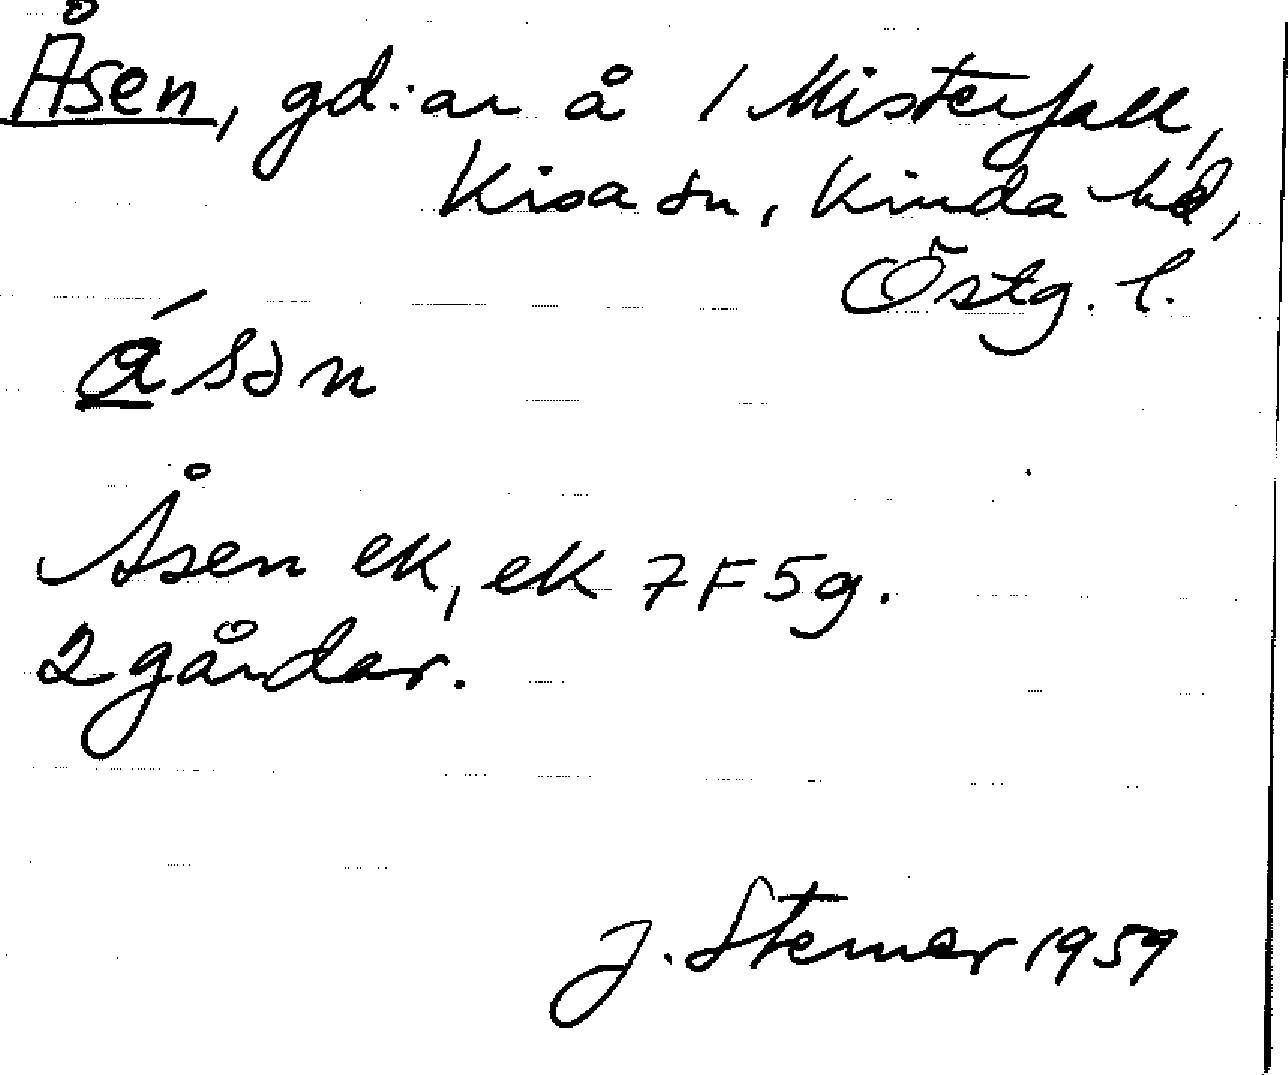 Åsen, gd:ar å 1 Misterfall,
Kisa sn, Kinda hd,
Östg. l.
á̲sən
Åsen ek, ek 7F5g.
2 gårdar.
J. Sterner 1959